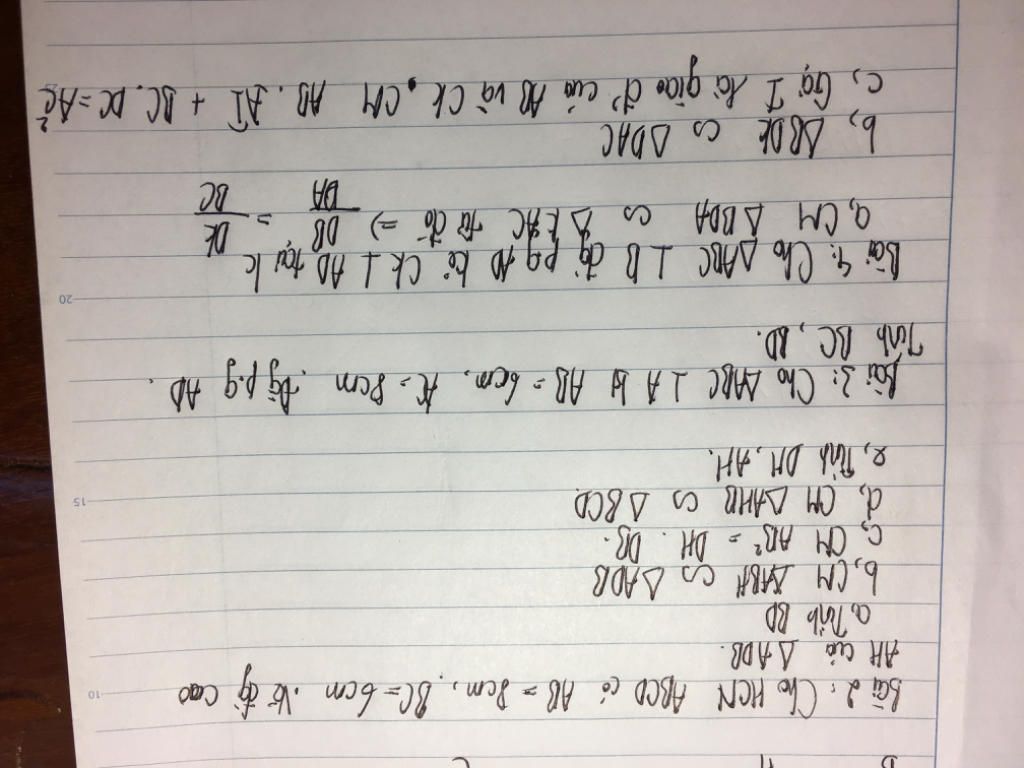 Bài 2: Cho HCN ABCD có AB = 8cm, BC = 6cm. Vẽ đg cao
AH của △ADB.
a, Tính BD
b, CM △ABH ∽ △ADB
c, CM AB² = DH . DB.
d, CM △AHB ∽ △BCD
e, Tính DH, AH.
Bài 3: Cho △ABC ⊥ A bt AB = 6cm, AC = 8cm. Đg p.g AD.
Tính BC, BD.
Bài 4: Cho △ABC ⊥ B đg p.g AD kẻ CK ⊥ AD tại K
a, CM △BDA ∽ △KAC từ đó ⇒ DB/DA = DK/BC
b, △BDK ∽ △DAC
c, Gọi I là giao đ' của AB và CK. CM AB. AI + BC. DC = AC²
15
20
10